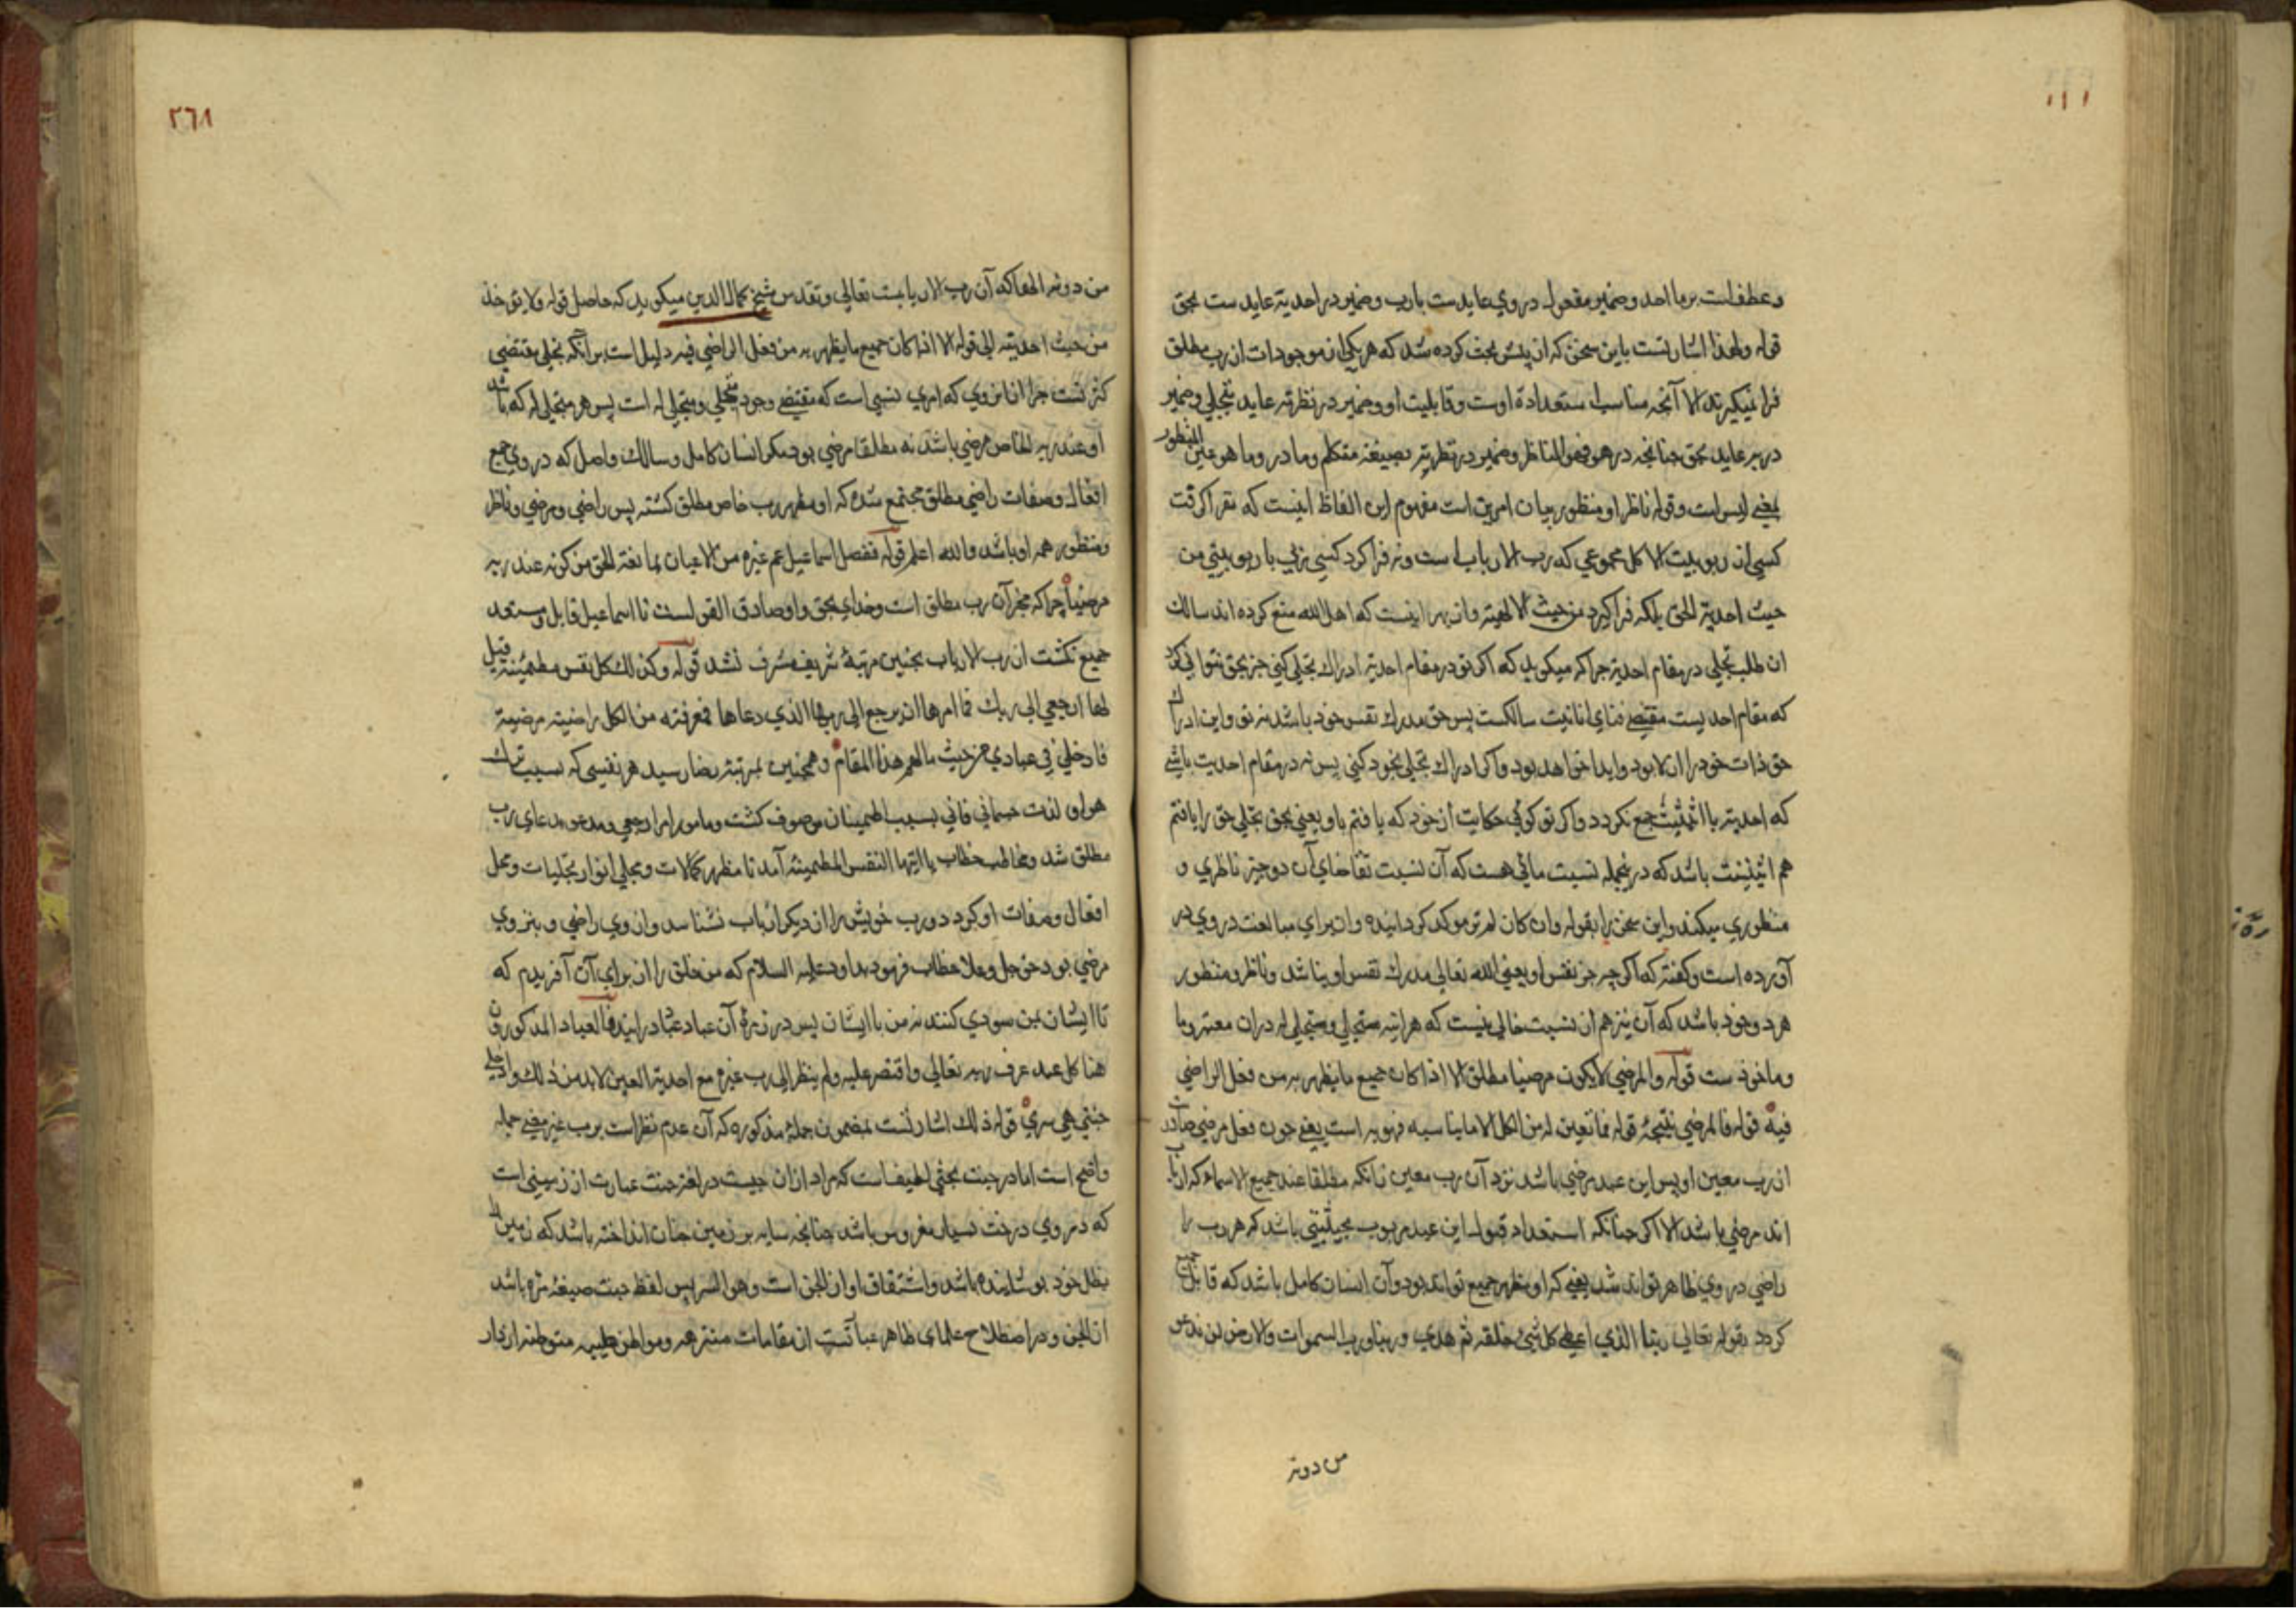 وعطف است بر ما احد وضمیر مفعول در وی عاید ست بارب وضمیر در احدیته عاید ست بحق
قوله ولهذا اشارتست باین سخن که از پیش بحث کرده شد که هر یکی از موجودات از رب مطلق
فرا نمیگیرند الا آنچه مناسب استعدادة اوست وقابلیت او وضمیر در نظرته عاید بتجلی وضمیر
در به عاید بحق چنانچه در هو فهو الناظر وضمیر در نظرته بصیغة متکلم وما در وما هو عین المنظور
بمعنی لیس است وقوله ناظرا ومنظورا بیان امرین است مفهوم این الفاظ اینست که نفرا کرفت
کسی از ربوبیت الا کل مجموعی که رب الارباب است ونه فرا کرد کسی مربی با ربوبیتی من
حیث احدیة الحق بلکه فرا کیرد من حیث الالهیة واز بهر اینست که اهل الله منع کرده اند سالک
از طلب تجلی در مقام احدیة جرا که میکوید که اکر تو در مقام احدیة ادراک تجلی کنی جز بحق نتوانی کرد
که مقام احدیست مقتضی فنای انانیت سالکست پس حق مدرک نفس خود باشد نه تو واین ادراک
حق ذات خود را ازلا بود وابدا خواهد بود واکر ادراک تجلی بخود کنی پس نه در مقام احدیت باشی
که احدیة با اثنینیت جمع نکردد واکر تو کوئی حکایت از خود که یافتم باو یعنی بحق تجلی حق را یافتم
هم اثنینیت باشد که درینجمله نسبت مائی هست که آن نسبت تقاضای آن دو چیز ناظری و
منظوری میکند واین سخن را بقوله وان کان لم تز موکد کردانیده واز برای مبالغت در وی در
آورده است وکفته که اکر چه جز نفس او یعنی الله تعالی مدرک نفس او نباشد وناظر ومنظور
هر دو خود باشد که آن نیز هم از نسبت خالی نیست که هر آینه متجلی ومتجلی له دران معتبر وما
وماخوذ ست قوله والمرضی لا یکون مرضیا مطلقا الا اذا کان جمیع ما یظهر به من فعل الراضی
فیه قوله فالمرضی نتیجۀ قوله فما تعین له من الکل الا ما یناسبه فهو ربه است یعنی چون فعل مرضی صادر
از رب معین او پس این عبد مرضی باشد نزد آن رب معین نه آنکه مطلقا عند جمیع الاسماء که ارباب
اند مرضی باشد الا اکر چنانکه استعداد قبول این عبد مربوب بحیثیتی باشد که هر رب را
راضی در وی ظاهر تواند شد یعنی که او مظهر جمیع تواند بود وآن انسان کامل باشد که قابل جمیع
کردد بقوله تعالی ربنا الذی اعطی کل شیء خلقه ثم هدی وربنا رب السموات والارض لن ندعو
من دونه
٢٦٨
من دونه الها که آن رب الاربابست تعالی وتقدس شیخ کمال الدین میکوید که حاصل قوله ولا یؤخذ
من حیث احدیته الی قوله الا اذا کان جمیع ما یظهر به من فعل الراضی فیه دلیل است بر آنکه تجلی مقتضی
کثرتست جرا از انروی که امری نسبی است که مقتضی وجود متجلی ومتجلی له است پس هر متجلی له که باشد
او عند ربه الخاص مرضی باشد نه مطلقا مرضی بود مکر انسان کامل وسالک واصل که در وی جمیع
افعال وصفات راضی مطلق مجتمع شده که او مظهر رب خاص مطلق کشته پس راضی ومرضی وناظر
ومنظور همه او باشد والله اعلم قوله ففضل اسماعیل عم غیره من الاعیان بما نعته الحق من کونه عند ربه
مرضیا جرا که مخبر آن رب مطلق است وخدای بحق واو صادق القولست تا اسماعیل قابل ومستعد
جمیع نکشت از رب الارباب بچنین مرتبۀ شریف مشرف نشد قوله وکذلک کل نفس مطمئنة قیل
لها ارجعی الی ربک فما امرها ان یرجع الی ربها الذی دعاها فعرفته من الکل راضیة مرضیة
فادخلی فی عبادی من حیث مالهم هذا المقام وهمچنین بمرتبۀ رضا رسید هر نفسی که بسبب ترک
هوا و لذت جسمانی فانی بسبب اطمینان موصوف کشت ومامور بامر ارجعی ومدعو بدعای رب
مطلق شد ومخاطب خطاب یا ایتها النفس المطمئنة آمد تا مظهر کمالات ومجلی انوار تجلیات ومحل
افعال وصفات او کردد ورب خویش را از دیکر ارباب نشناسد واز وی راضی وبنزد وی
مرضی بود حق جل وعلا خطاب فرمود بداود علیه السلام که من خلق را از برای آن آفریدم که
تا ایشان بمن سودی کنند نه من با ایشان پس در زمرۀ آن عباد عبّاد درآیند فالعباد المذکورون
هنا کل عبد عرف ربه تعالی واقتصر علیه ولم ینظر الی رب غیره مع احدیة العین لا بد من ذلک وادخلی
جنتی هی ستری قوله ذلک اشارتست بمضمون جملۀ مذکوره که آن عدم نظر است برب غیر معنی جمله
واضح است اما در جنت بحثی لطیف است که مراد ازان چیست در لغة جنت عبارت از زمینی است
که در وی درخت بسیار مغروس باشد چنانچه سایه بر زمین جنات انداخته باشد که زمین را
بظل خود پوشانیده باشد واشتقاق او از الجن است وهو الستر پس لفظ جنت صیغۀ مرة باشد
از الجن ودر اصطلاح علمای ظاهر عبارتست از مقامات متنزهه ومواطن طیبه متوطنه از دار